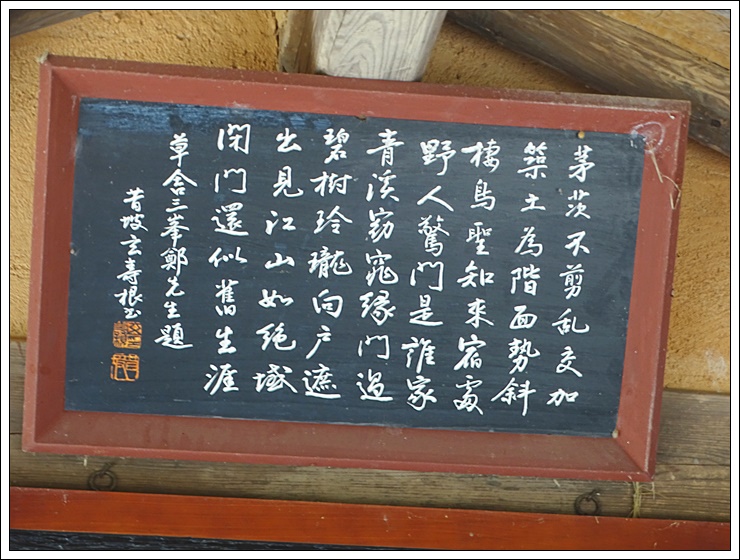 茅茨不剪乱交加
築土為階面勢斜
棲鳥聖知來宿處
野人驚門是誰家
青溪窈窕緣門過
碧樹玲瓏向戶遮
出見江山如絶域
閉門還似舊生涯
草舍三峯鄭先生題
昔坡玄壽根书